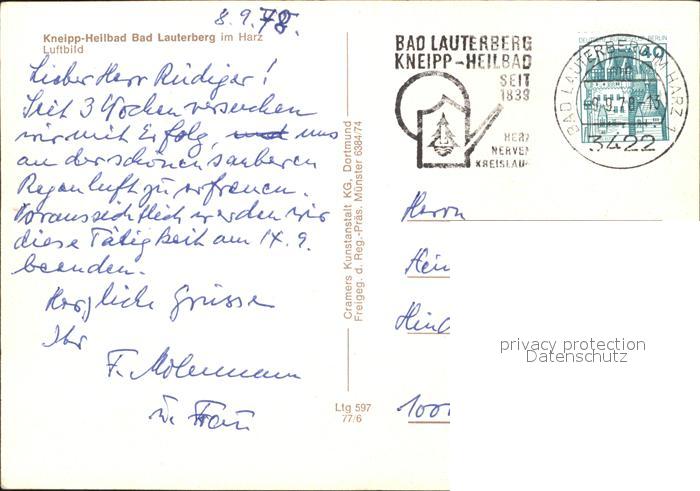 8.9.78.
Kneipp-Heilbad Bad Lauterberg im Harz
Luftbild
Lieber Herr Rüdiger!
Seit 3 Wochen versuchen
wir mit Erfolg, uns
an der schönen sauberen
Regenluft zu erfreuen.
Voraussichtlich werden wir
diese Tätigkeit am 14.9.
beenden.
Herzliche Grüsse
Ihr
F.
u. Frau
Cramers Kunstanstalt KG, Dortmund
Freigeg. d. Reg.-Präs. Münster 6384/74
Ltg 597
77/6
BAD LAUTERBERG
KNEIPP-HEILBAD
SEIT
1839
HERZ
NERVEN
KREISLAU-
DEUTSCHE BUNDESPOST BERLIN
40
BAD LAUTERBERG IM HARZ 1
3422
Herrn
Hein
Hind
1000
privacy protection
Datenschutz